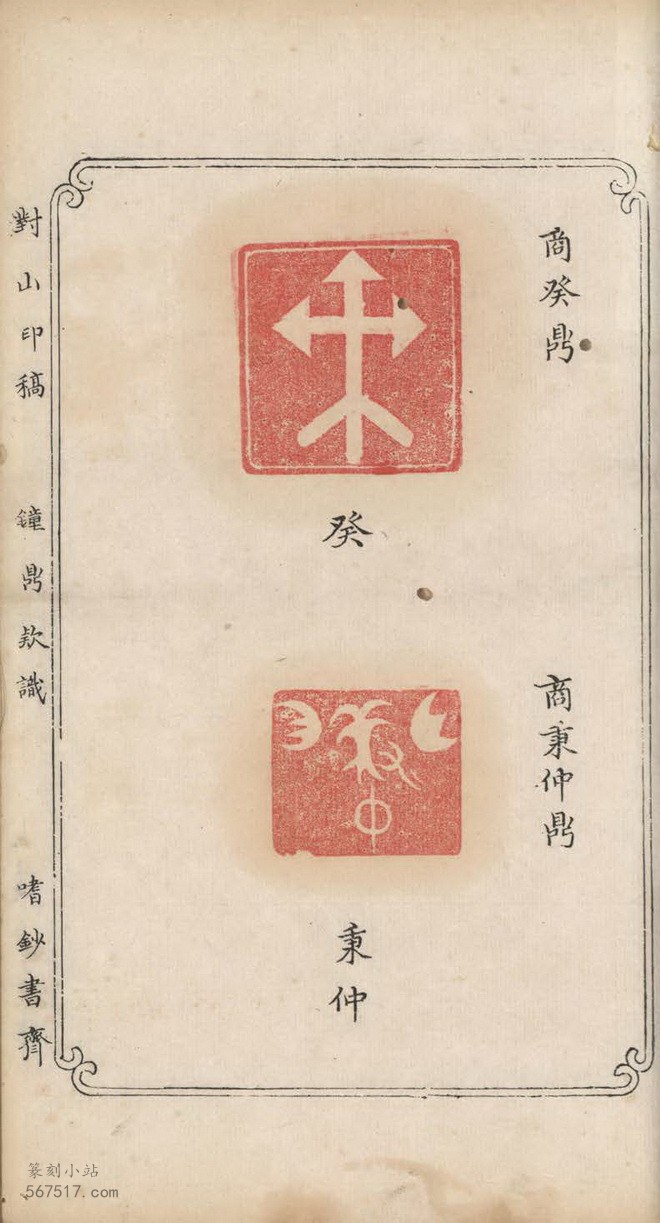 商癸鼎
癸
商秉仲鼎
秉仲
對山印稿 鐘鼎欵識 嗜鈔書齋
篆刻小站
567517.com